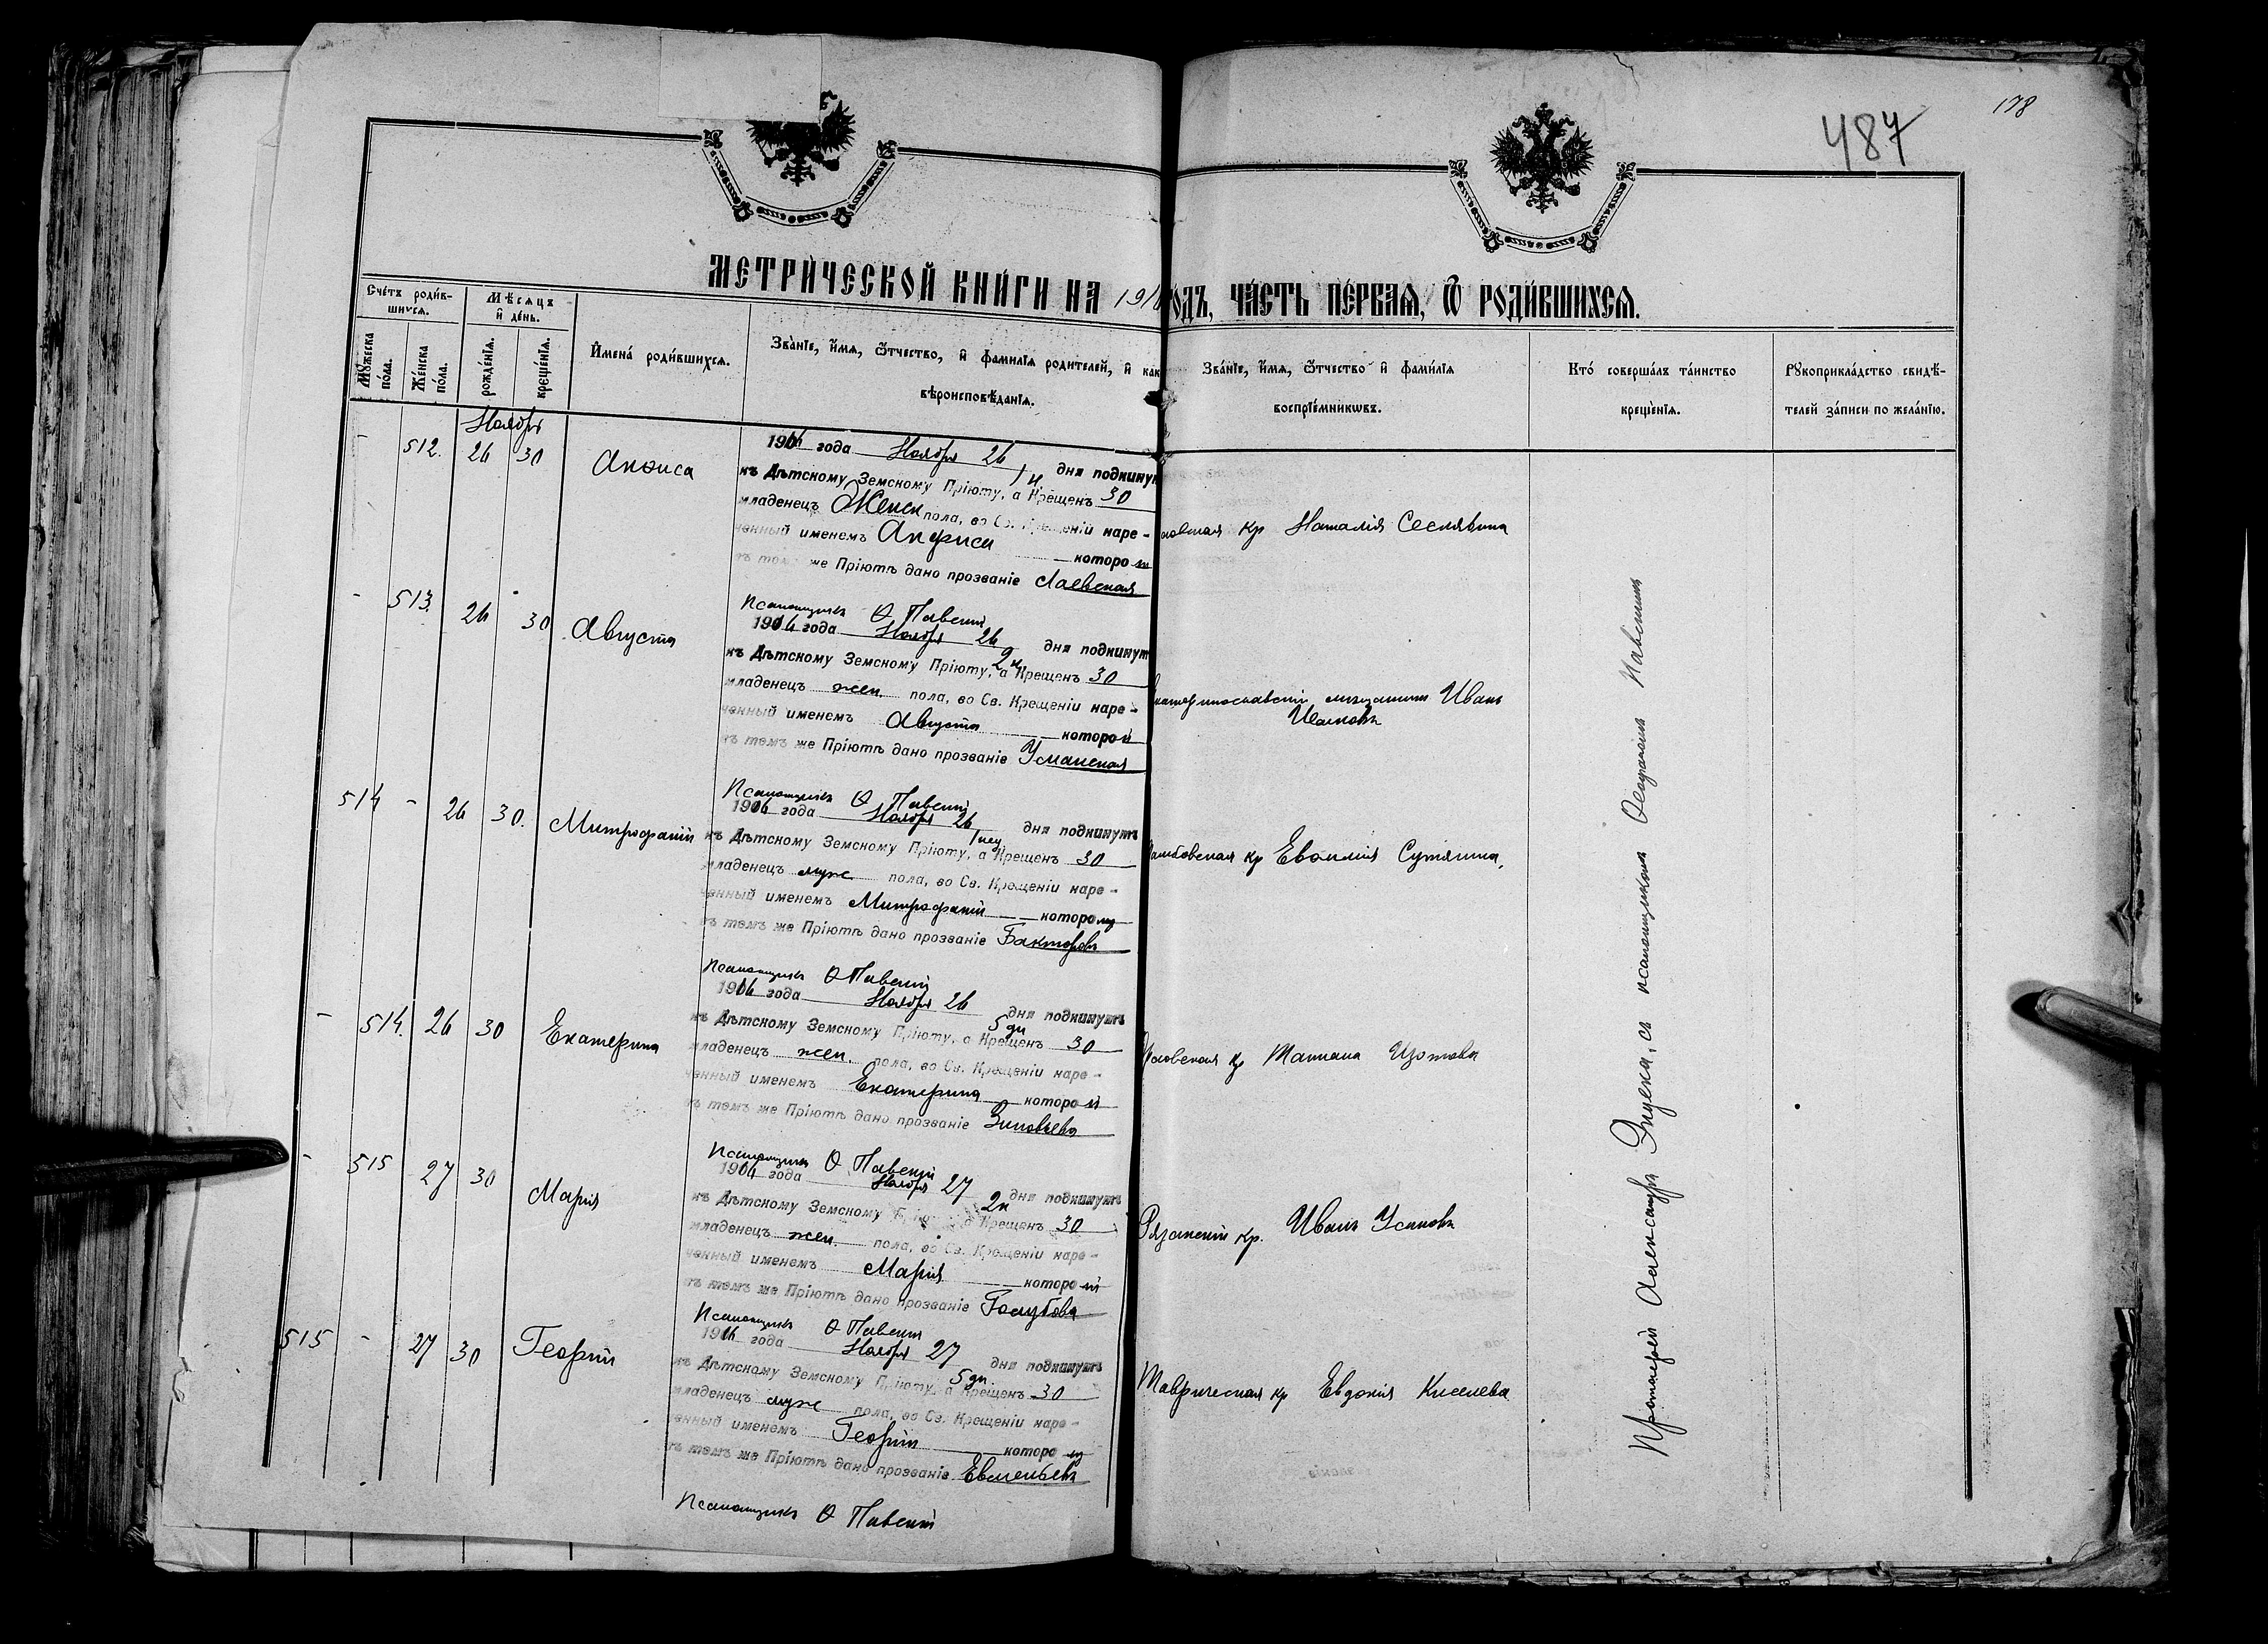 178
487
МЕТРИЧЕСКОЙ КНИГИ НА 191 ОДЪ, ЧАСТЬ ПЕРВАЯ, Ѿ РОДИВШИХСЯ.
Счетъ родив-
шихся.
Мѣсяцъ
и день.
Мужеска
пола.
Женска
пола.
рожденія.
крещенія.
Имена родившихся.
Званіе, имя, ѿтчество, и фамилія родителей, и как
вѣроисповѣданія.
Званіе, имя, ѿтчество и фамилія
воспріемниковъ.
Кто совершалъ таинство
крещенія.
Рукоприкладство свидѣ-
телей записи по желанію.
Ноября
- 512. 26 30 Анфиса
1916 года Ноября 26 дня подкинут
къ Дѣтскому Земскому Пріюту, а Крещенъ 30
1 н
младенецъ Женск пола, во Св. Крещеніи наре-
ченный именемъ Анфиса которой
въ томъ же Пріютѣ дано прозваніе Лаевская
Псаломщикъ Ѳ Павскій
кр Наталія Сеслявина
- 513. 26 30 Августа
1916 года Ноября 26 дня подкинут
къ Дѣтскому Земскому Пріюту, а Крещенъ 30
2 н
младенецъ жен. пола, во Св. Крещеніи наре-
ченный именемъ Августа которой
въ томъ же Пріютѣ дано прозваніе Усманская
Псаломщикъ Ѳ Павскій
катеринославскій мѣщанинъ Иванъ
514 - 26 30. Митрофаній
1916 года Ноября 26 дня подкинутъ
къ Дѣтскому Земскому Пріюту, а Крещенъ 30
1 нед
младенецъ муж пола, во Св. Крещеніи наре-
ченный именемъ Митрофаній которому
въ томъ же Пріютѣ дано прозваніе Бакторовъ
Псаломщикъ Ѳ Павскій
Тамбовская кр Евѳимія Сутягина,
- 514. 26 30 Екатерина
1916 года Ноября 26 дня подкинутъ
къ Дѣтскому Земскому Пріюту, а Крещенъ 30
5 дн
младенецъ жен. пола, во Св. Крещеніи наре-
ченный именемъ Екатерина которой
въ томъ же Пріютѣ дано прозваніе Зиновьева
Псаломщикъ Ѳ Павскій
кр Татіана Изотова
- 515 27 30 Марія
1916 года Ноября 27 дня подкинутъ
къ Дѣтскому Земскому Пріюту, а Крещенъ 30
2 н
младенецъ жен. пола, во Св. Крещеніи наре-
ченный именемъ Марія которой
въ томъ же Пріютѣ дано прозваніе Голубова
Псаломщикъ Ѳ Павскій
Рязанскій кр. Иванъ Усановъ
515 - 27 30 Георгій
1916 года Ноября 27 дня подкинутъ
къ Дѣтскому Земскому Пріюту, а Крещенъ 30
5 дн.
младенецъ муж пола, во Св. Крещеніи наре-
ченный именемъ Георгій которому
въ томъ же Пріютѣ дано прозваніе Евменьевъ
Псаломщикъ Ѳ Павскій
Таврическая кр Евдокія Киселева
Протоіерей Александръ Эндека, съ псаломщикомъ Ѳеофаномъ Павскимъ